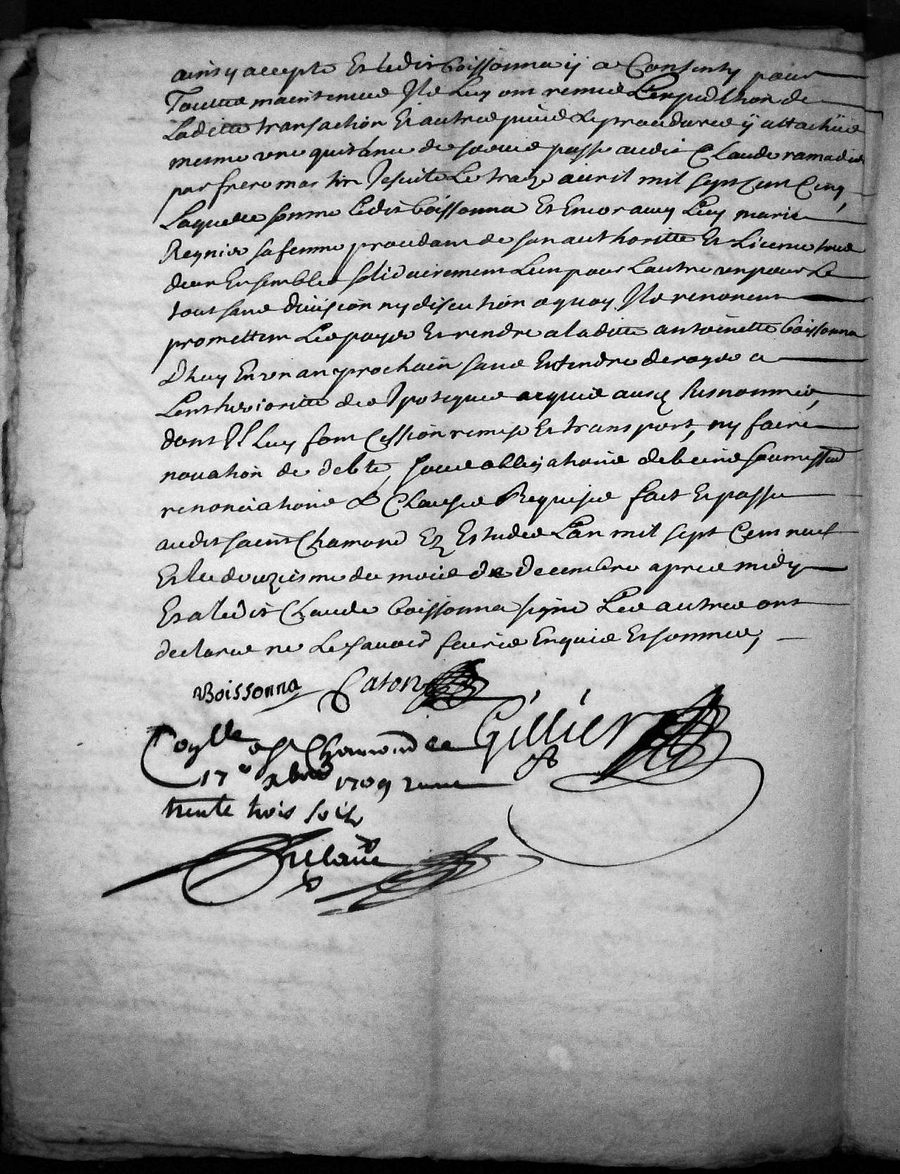 ainsy accepté Et ledit boissonna ÿ a Consenty pour
Toutte maintenue Ils Luy ont remis L'expedition de
Laditte transaction Et autres pieces Et procedures ÿ attachées
mesme une quittance de passé audit Claude ramadié
par frere martin Jesuite Le traze auril mil sept Cent Cinq,
Laquelle somme Ledit boissonna Et Encor auec Luy marie
Reynier sa femme procedant de son authoritté Et Licence tous
deux Ensembles solidairement L'un pour L'autre un pour Le
tout sans diuision ny discution a quoy Ils renoncent
promettent Les payer Et rendre a laditte antoinette boissonna
d'huy En un an prochain sans Entendre deroger a
L'antherioritté des Ipoteques acquis ausd susnommés,
dont Il Luy font Cession remise Et transport, ny faire
nouation de debte, sous obligations de biens soumissions
renonciations & Clauses Requises fait Et passé
audit saint Chamond Ez Estudes L'an mil sept Cent neuf
Et le douziesme du mois de decembre apres midy
Et a ledit Claude boissonna signé Les autres ont
declaré ne Le sauoir faire Enquis Et sommés,
Boissonna Caton
Con.lle a St Chamond ce Gillier
17e xbre 1709 receu
trente trois solz